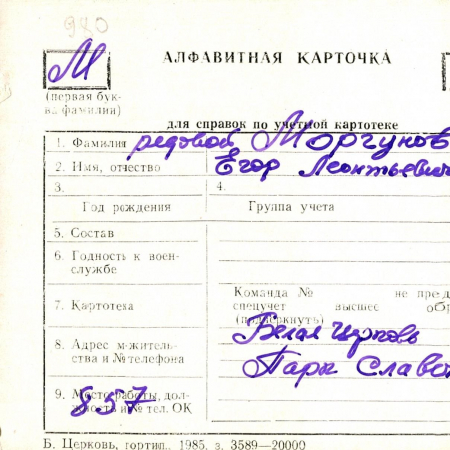 920
М
АЛФАВИТНАЯ КАРТОЧКА
(первая бук-
ва фамилии)
для справок по учетной картотеке
1. Фамилия рядовой Моргунов
2. Имя, отчество Егор Леонтьевич
3. 4.
Год рождения Группа учета
5. Состав
6. Годность к воен-
службе
7. Картотека
Команда № не пред
спецучет высшее об
(подчеркнуть)
8. Адрес м-житель-
ства и № телефона
Белая Церковь
Парк Слава
9. Место работы, дол-
жность и № тел. ОК
857
Б. Церковь, гортип., 1985. з. 3589—20000